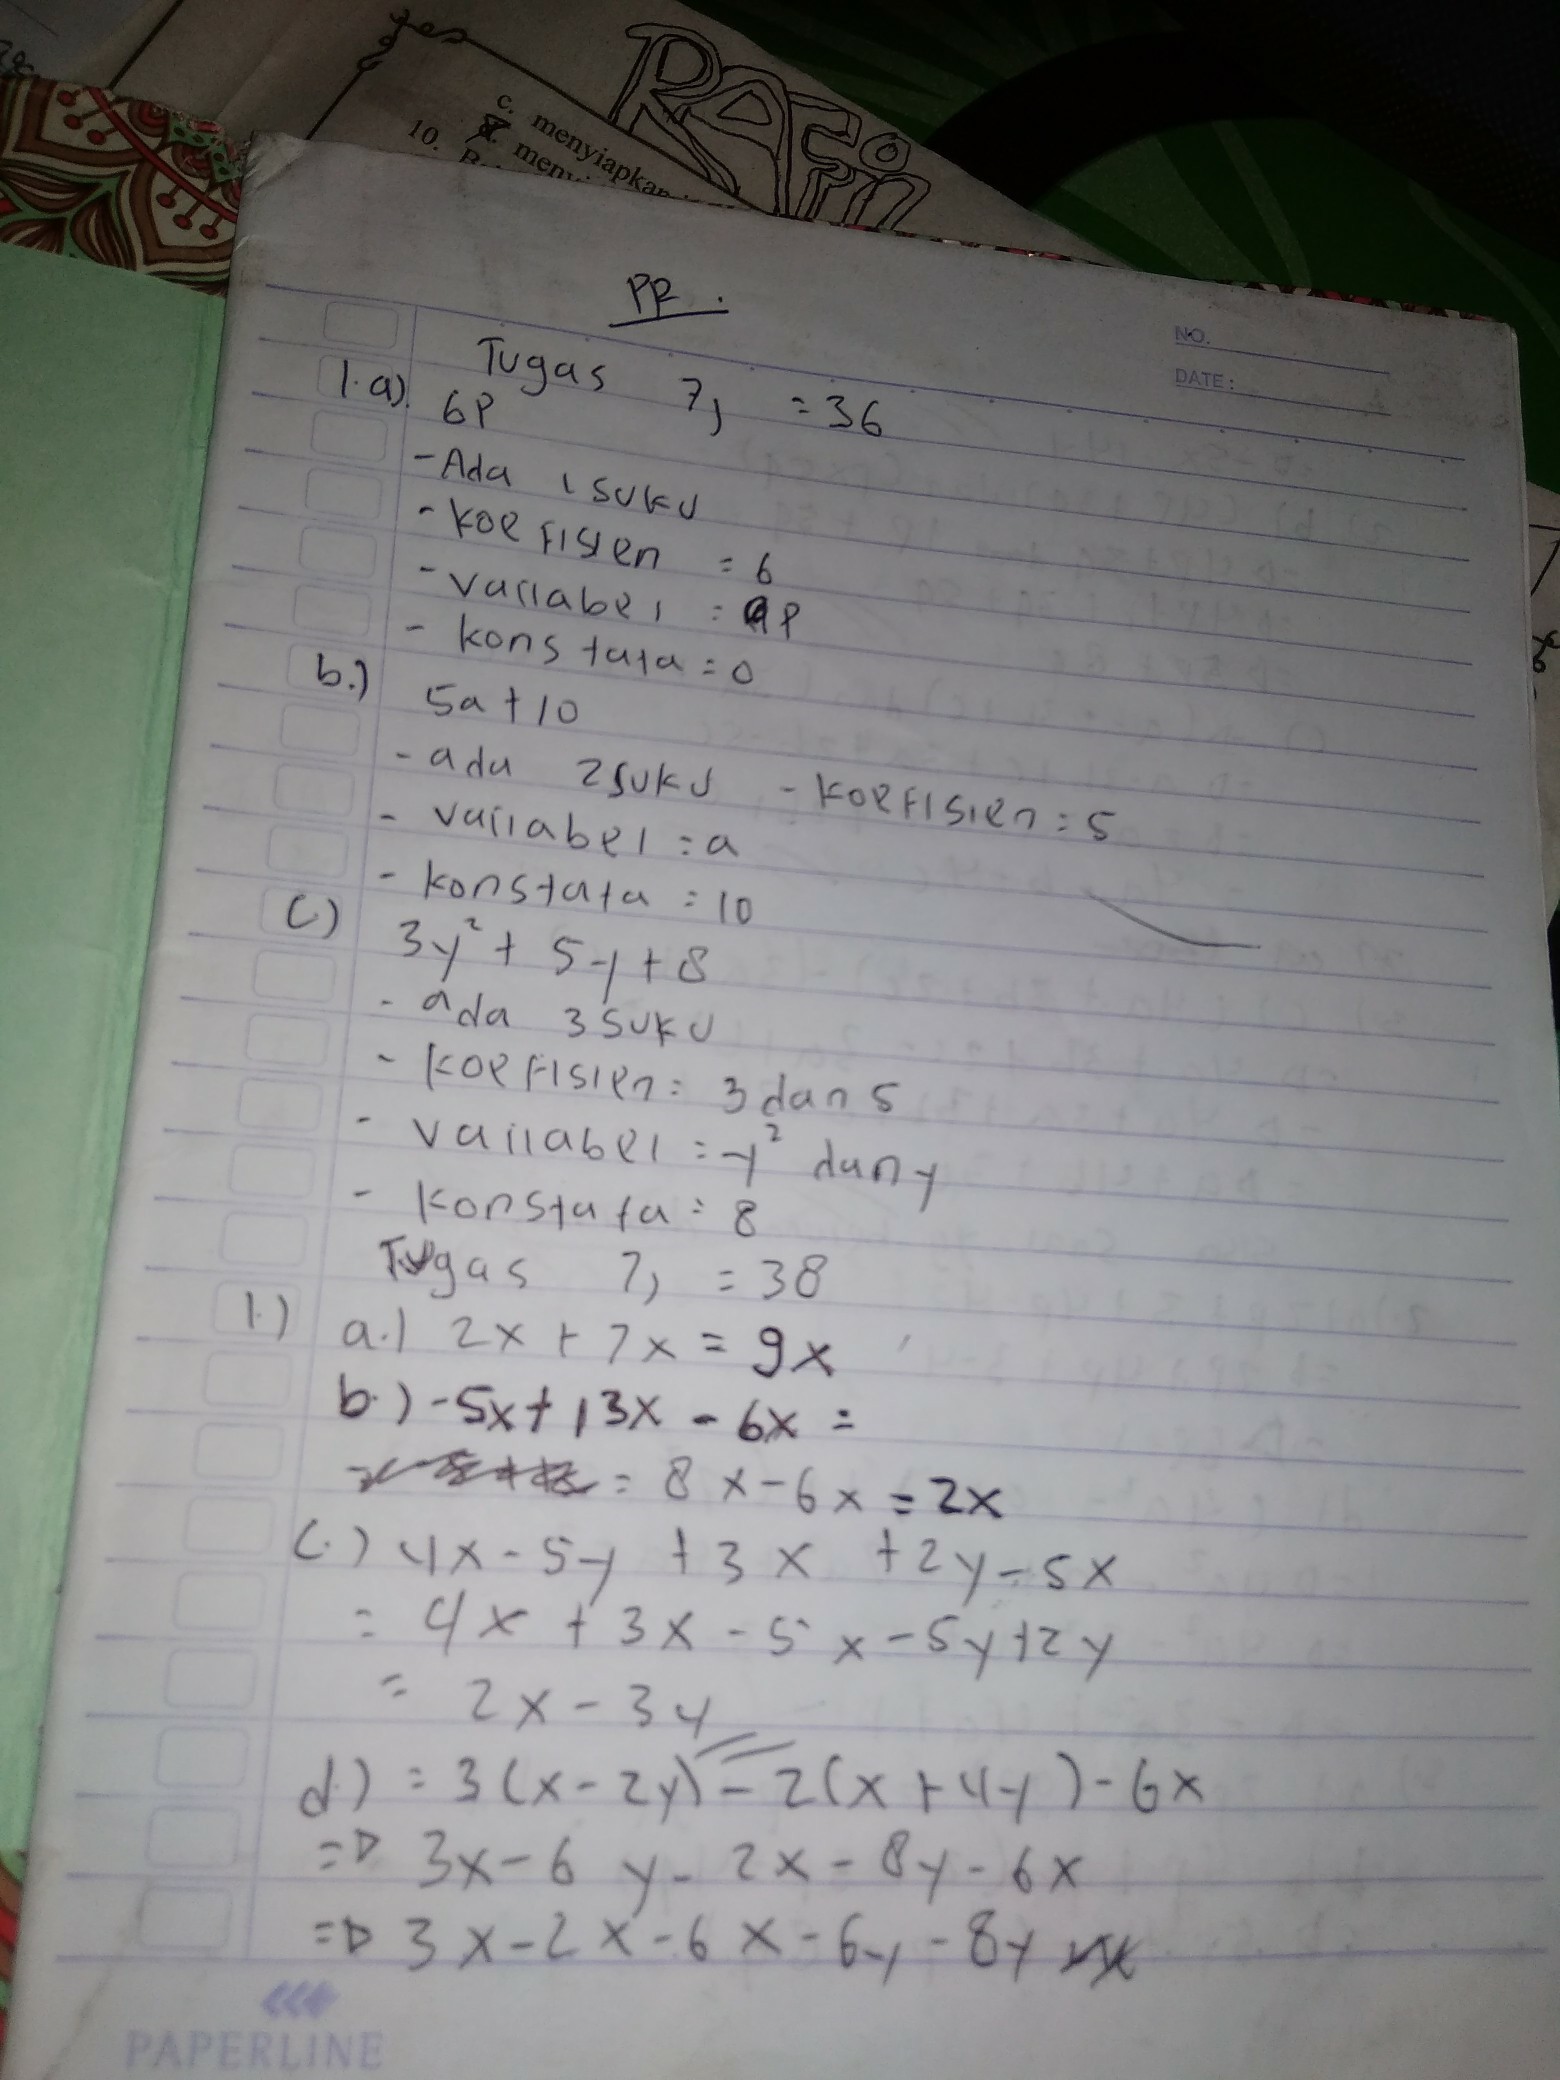 RAFI
c. menyiapkan
10.
PR.
NO.
DATE:
Tugas 7, = 36
1.a). 6P
- Ada 1 suku
- koefisien = 6
- variabel = P
- konstata = 0
b.) 5a + 10
- ada 2 suku - koefisien = 5
- variabel = a
- konstata = 10
c.) 3y² + 5y + 8
- ada 3 suku
- koefisien = 3 dan 5
- variabel = y² dan y
- konstata = 8
Tugas 7, = 38
1.) a.) 2x + 7x = 9x
b.) -5x + 13x - 6x =
= 8x - 6x = 2x
c.) 4x - 5y + 3x + 2y - 5x
= 4x + 3x - 5x - 5y + 2y
= 2x - 3y
d.) = 3(x - 2y) - 2(x + 4y) - 6x
=> 3x - 6y - 2x - 8y - 6x
=> 3x - 2x - 6x - 6y - 8y
PAPERLINE